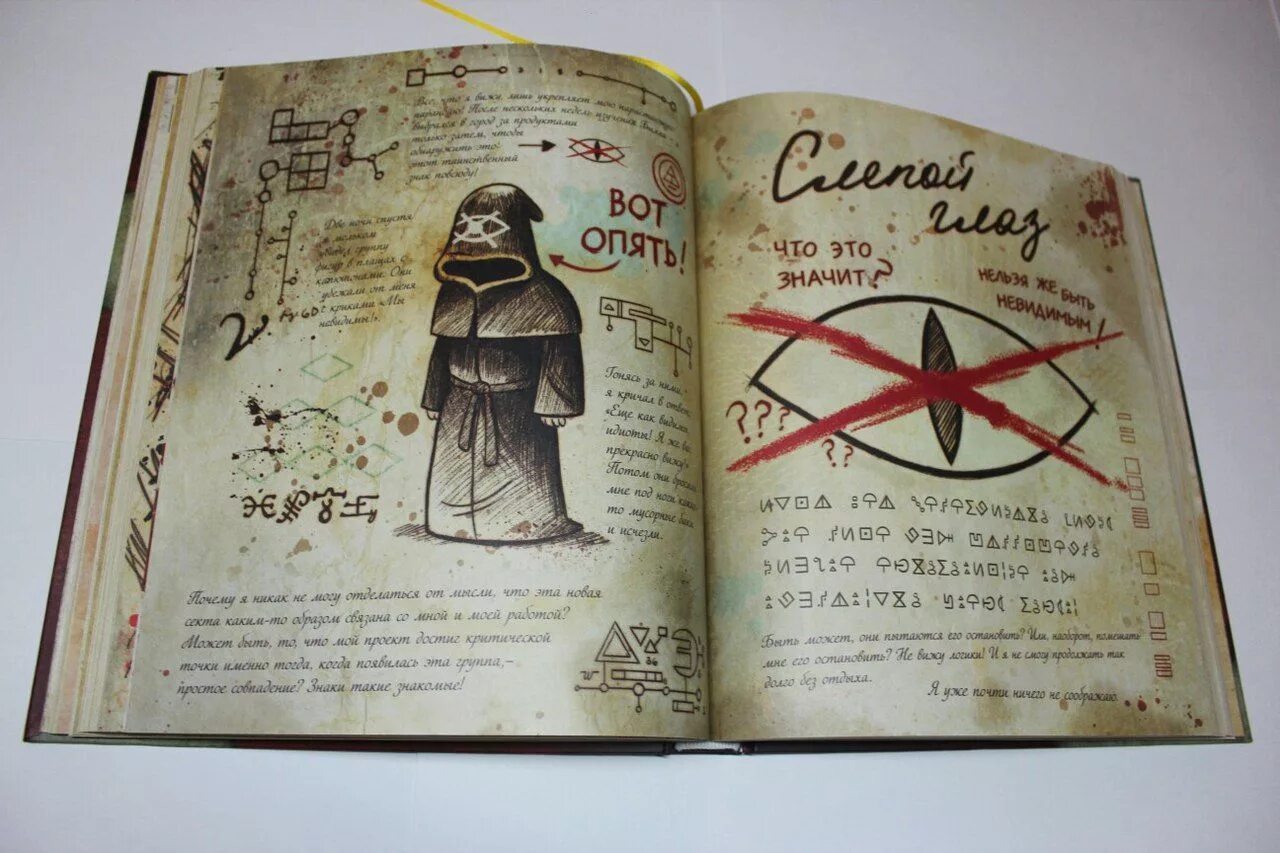 Все, что я вижу, лишь укрепляет мою
паранойю! После нескольких недель изучения Билла я
выбрался в город за продуктами
только затем, чтобы
обнаружить это:
этот таинственный
знак повсюду!
ВОТ
ОПЯТЬ!
Две ночи спустя
я мельком
увидел группу
фигур в плащах с
капюшонами. Они
убежали от меня
с криками «Мы
невидимы!».
Гонясь за ними,
я кричал в ответ
«Еще как видимы,
идиоты! Я же вас
прекрасно вижу»
Потом они бросили
мне под ноги какие-
то мусорные баки
и исчезли.
Почему я никак не могу отделаться от мысли, что эта новая
секта каким-то образом связана со мной и моей работой?
Может быть, то, что мой проект достиг критической
точки именно тогда, когда появилась эта группа,–
простое совпадение? Знаки такие знакомые!
Слепой
глаз
ЧТО ЭТО
ЗНАЧИТ?
НЕЛЬЗЯ ЖЕ БЫТЬ
НЕВИДИМЫМ!
???
??
Быть может, они пытаются его остановить? Или, наоборот, помешать
мне его остановить? Не вижу логики! И я не смогу продолжать так
долго без отдыха.
Я уже почти ничего не соображаю.